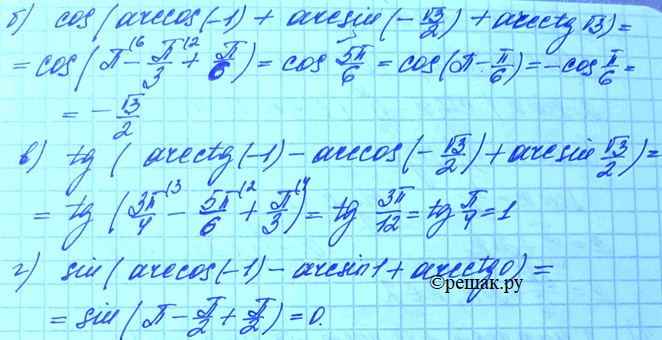 б) cos(arccos(-1) + arcsin(-√3/2) + arcctg √3) =
= cos(π - π/3 + π/6) = cos 5π/6 = cos(π - π/6) = -cos π/6 =
= -√3/2
в) tg(arcctg(-1) - arccos(-√3/2) + arcsin √3/2) =
= tg(3π/4 - 5π/6 + π/3) = tg 3π/12 = tg π/4 = 1
г) sin(arccos(-1) - arcsin 1 + arcctg 0) =
©решак.ру
= sin(π - π/2 + π/2) = 0.